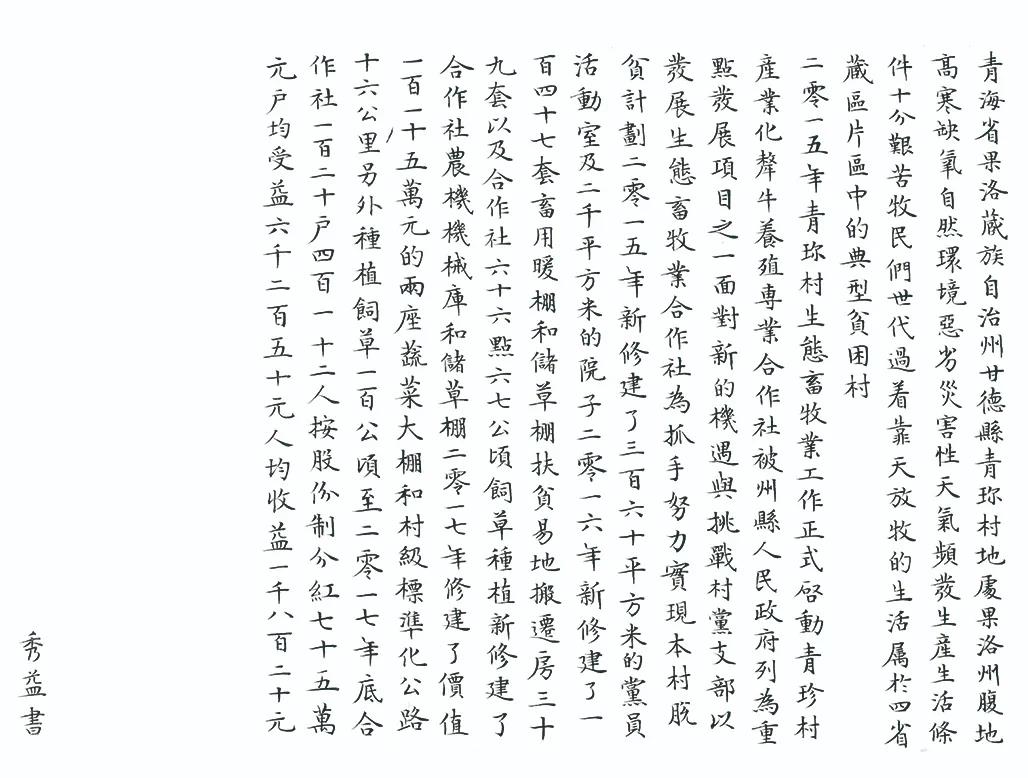 青海省果洛蔵族自治州甘德縣青珎村地處果洛州腹地
高寒缺氧自然環境惡劣災害性天氣頻發生産生活條
件十分艱苦牧民們世代過着靠天放牧的生活属於四省
蔵區片區中的典型貧困村
二零一五年青珎村生態畜牧業工作正式啓動青珍村
産業化犛牛養殖専業合作社被州縣人民政府列為重
點發展項目之一面對新的機遇與挑戰村黨支部以
發展生態畜牧業合作社為抓手努力實現本村脱
貧計劃二零一五年新修建了三百六十平方米的黨員
活動室及二千平方米的院子二零一六年新修建了一
百四十七套畜用暖棚和儲草棚扶貧易地搬遷房三十
九套以及合作社六十六點六七公頃飼草種植新修建了
合作社農機機械庫和儲草棚二零一七年修建了價值
一百一十五萬元的兩座蔬菜大棚和村級標準化公路
十六公里另外種植飼草一百公頃至二零一七年底合
作社一百二十户四百一十二人按股份制分紅七十五萬
元户均受益六千二百五十元人均收益一千八百二十元
秀益書